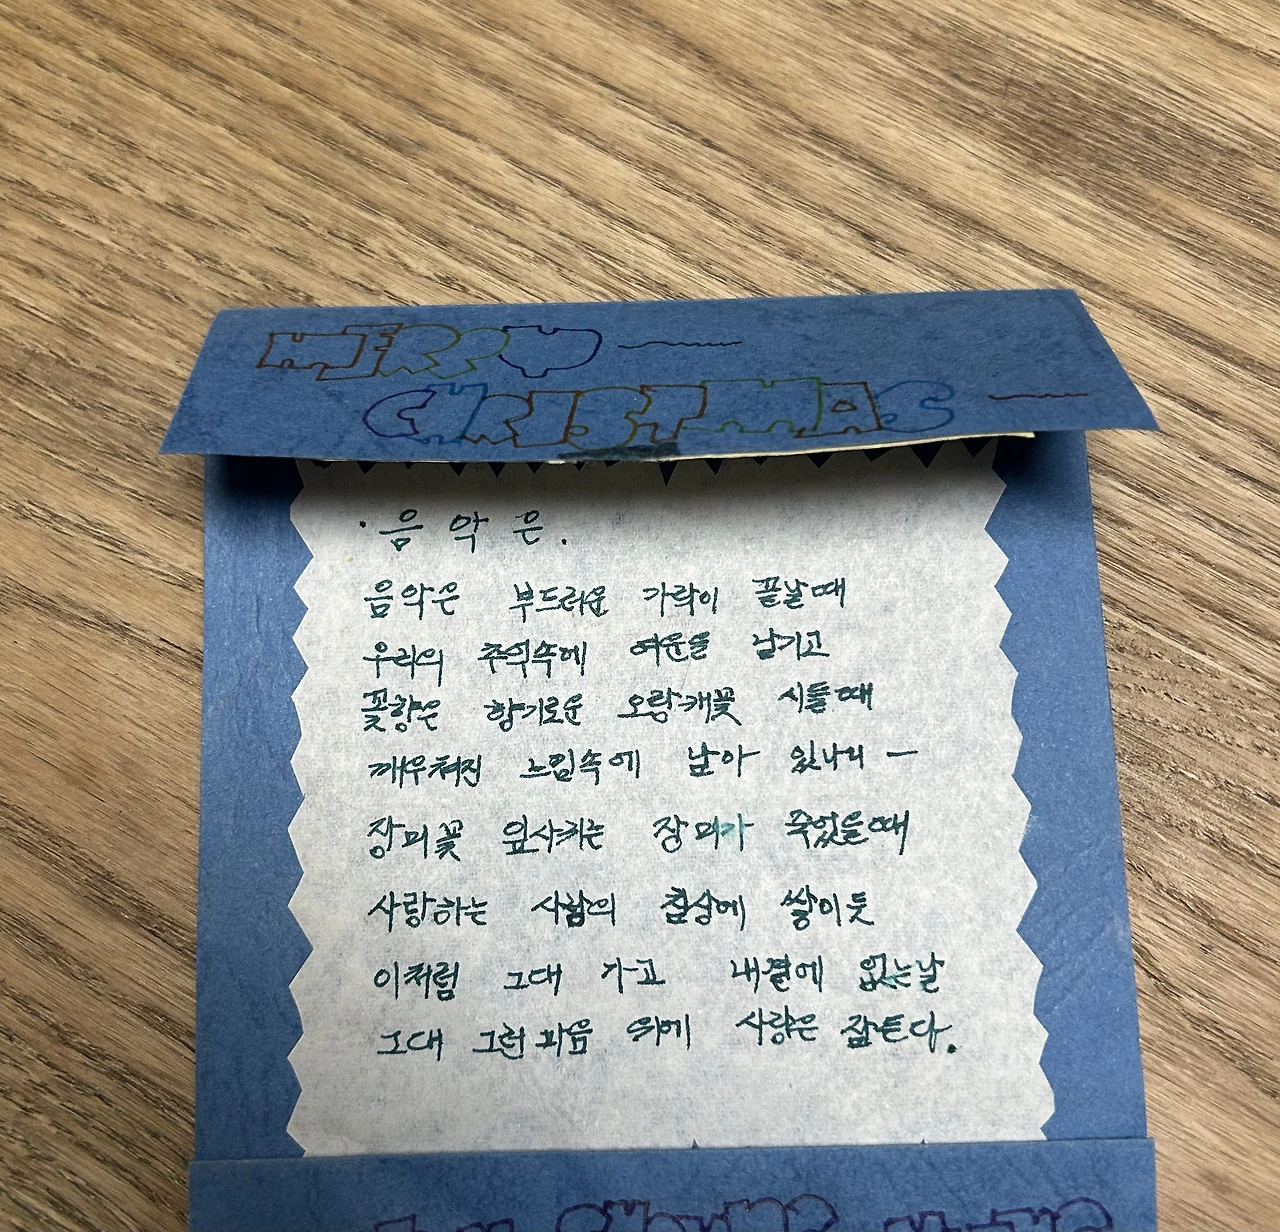 MERRY
CHRISTMAS
· 음 악 은.
음악은 부드러운 가락이 끝날때
우리의 추억속에 여운을 남기고
꽃향은 향기로운 오랑캐꽃 시들때
깨우쳐진 느낌속에 남아 있나니 —
장미꽃 잎사귀는 장미가 죽었을때
사랑하는 사람의 침상에 쌓이듯
이처럼 그대 가고 내곁에 없는날
그대 그런 위에 사랑은 잠든다.